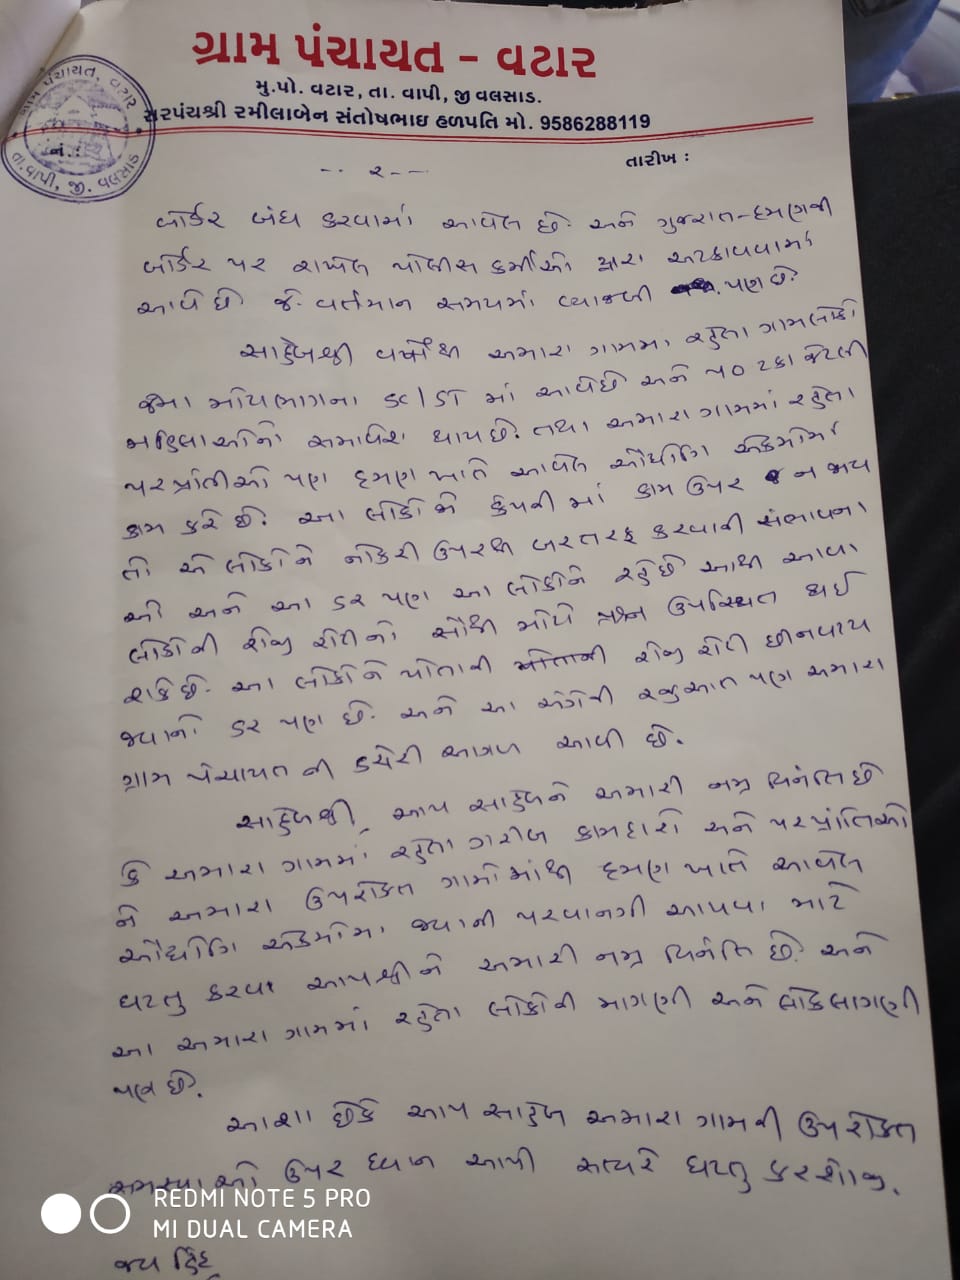 ગ્રામ પંચાયત - વટાર
મુ.પો. વટાર, તા. વાપી, જી વલસાડ.
સરપંચશ્રી રમીલાબેન સંતોષભાઇ હળપતિ મો. 9586288119
ગ્રામ પંચાયત, વટાર
તા.વાપી, જી. વલસાડ
નં. :
તારીખ :
-- ૨ --
બોર્ડર બંધ કરવામાં આવેલ છે. અને ગુજરાત-દમણની
બોર્ડર પર રાખેલ પોલીસ કર્મીઓ દ્વારા અટકાવવામાં
આવે છે જે વર્તમાન સમયમાં વ્યાજબી પણ છે.
સાહેબશ્રી વર્ષોથી અમારા ગામમાં રહેતા ગામલોકો
જેમા મોટાભાગના SC/ST માં આવેછે અને ૫૦ ટકા જેટલી
મહિલાઓનો સમાવેશ થાયછે. તથા અમારા ગામમાં રહેતા
પરપ્રાંતીઓ પણ દમણ ખાતે આવેલ ઔધોગિ એકમોમાં
કામ કરે છે. આ લોકો જે કંપની માં કામ ઉપર ન જાય
તો એ લોકોને નોકરી ઉપરથી બરતરફ કરવાની સંભાવના
ઓ અને આ ડર પણ આ લોકોને રહેછે આથી આવા
લોકોની રોજી રોટીનો સૌથી મોટો પ્રશ્ન ઉપસ્થિત થઈ
શકેછે. આ લોકોને પોતાની રોજી રોટી છીનવાય
જવાનો ડર પણ છે. અને આ અંગેની રજુઆત પણ અમારા
ગ્રામ પંચાયત ની કચેરી આગળ આવી છે.
સાહેબશ્રી, આપ સાહેબને અમારી નમ્ર વિનંતિ છે
કે અમારા ગામમાં રહેતા ગરીબ કામદારો અને પરપ્રાંતિઓ
ને અમારા ઉપરોક્ત ગામોમાંથી દમણ ખાતે આવેલ
ઔધોગિ એકમોમાં જવાની પરવાનગી આપવા માટે
ઘટતુ કરવા આપશ્રીને અમારી નમ્ર વિનંતિ છે. અને
આ અમારા ગામમાં રહેતા લોકોની માગણી અને લોકલાગણી
પણ છે.
આશા છેકે આપ સાહેબ અમારા ગામની ઉપરોક્ત
સમસ્યાઓ ઉપર ધ્યાન આપી સત્વરે ઘટતુ કરશોજી.
જય હિંદ
REDMI NOTE 5 PRO
MI DUAL CAMERA